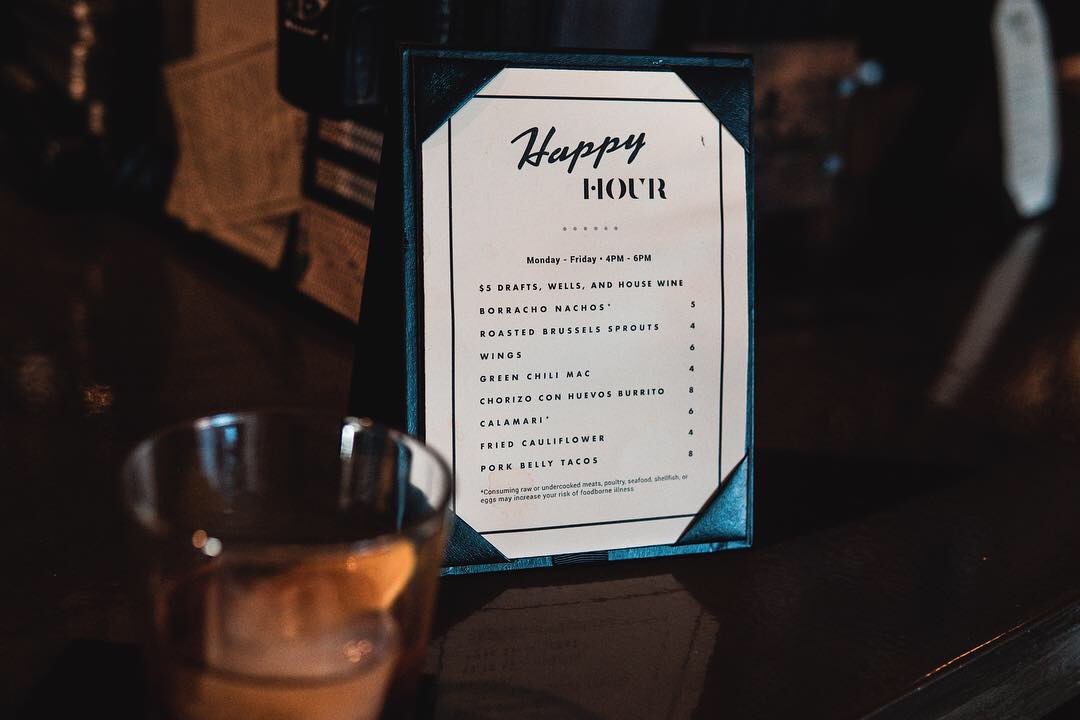 Happy
HOUR
Monday - Friday • 4PM - 6PM
$5 DRAFTS, WELLS, AND HOUSE WINE
BORRACHO NACHOS* 5
ROASTED BRUSSELS SPROUTS 4
WINGS 6
GREEN CHILI MAC 4
CHORIZO CON HUEVOS BURRITO 8
CALAMARI* 6
FRIED CAULIFLOWER 4
PORK BELLY TACOS 8
*Consuming raw or undercooked meats, poultry, seafood, shellfish, or
eggs may increase your risk of foodborne illness